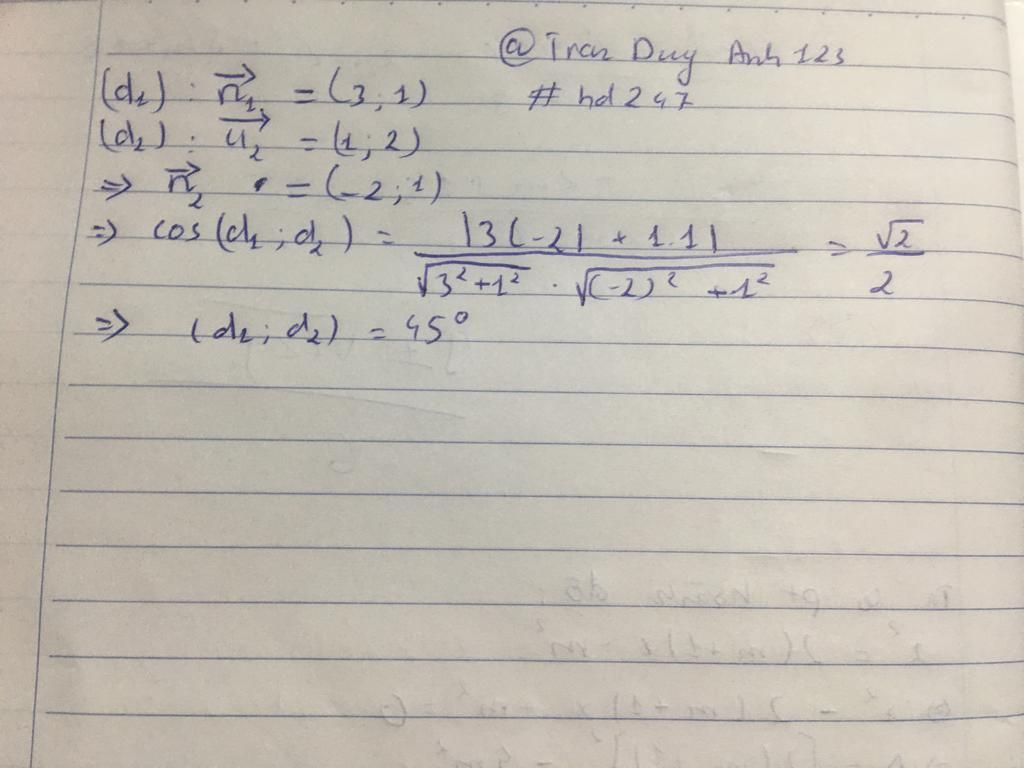 @Tran Duy Anh 123
(d₁) : n₁⃗ = (3 ; 1) # hd 247
(d₂) : u₂⃗ = (1 ; 2)
=> n₂⃗ = (-2 ; 1)
=> cos (d₁ ; d₂) = |3(-2| + 1.1| / √3²+1² . √(-2)² +1² = √2 / 2
=> (d₁ ; d₂) = 45°